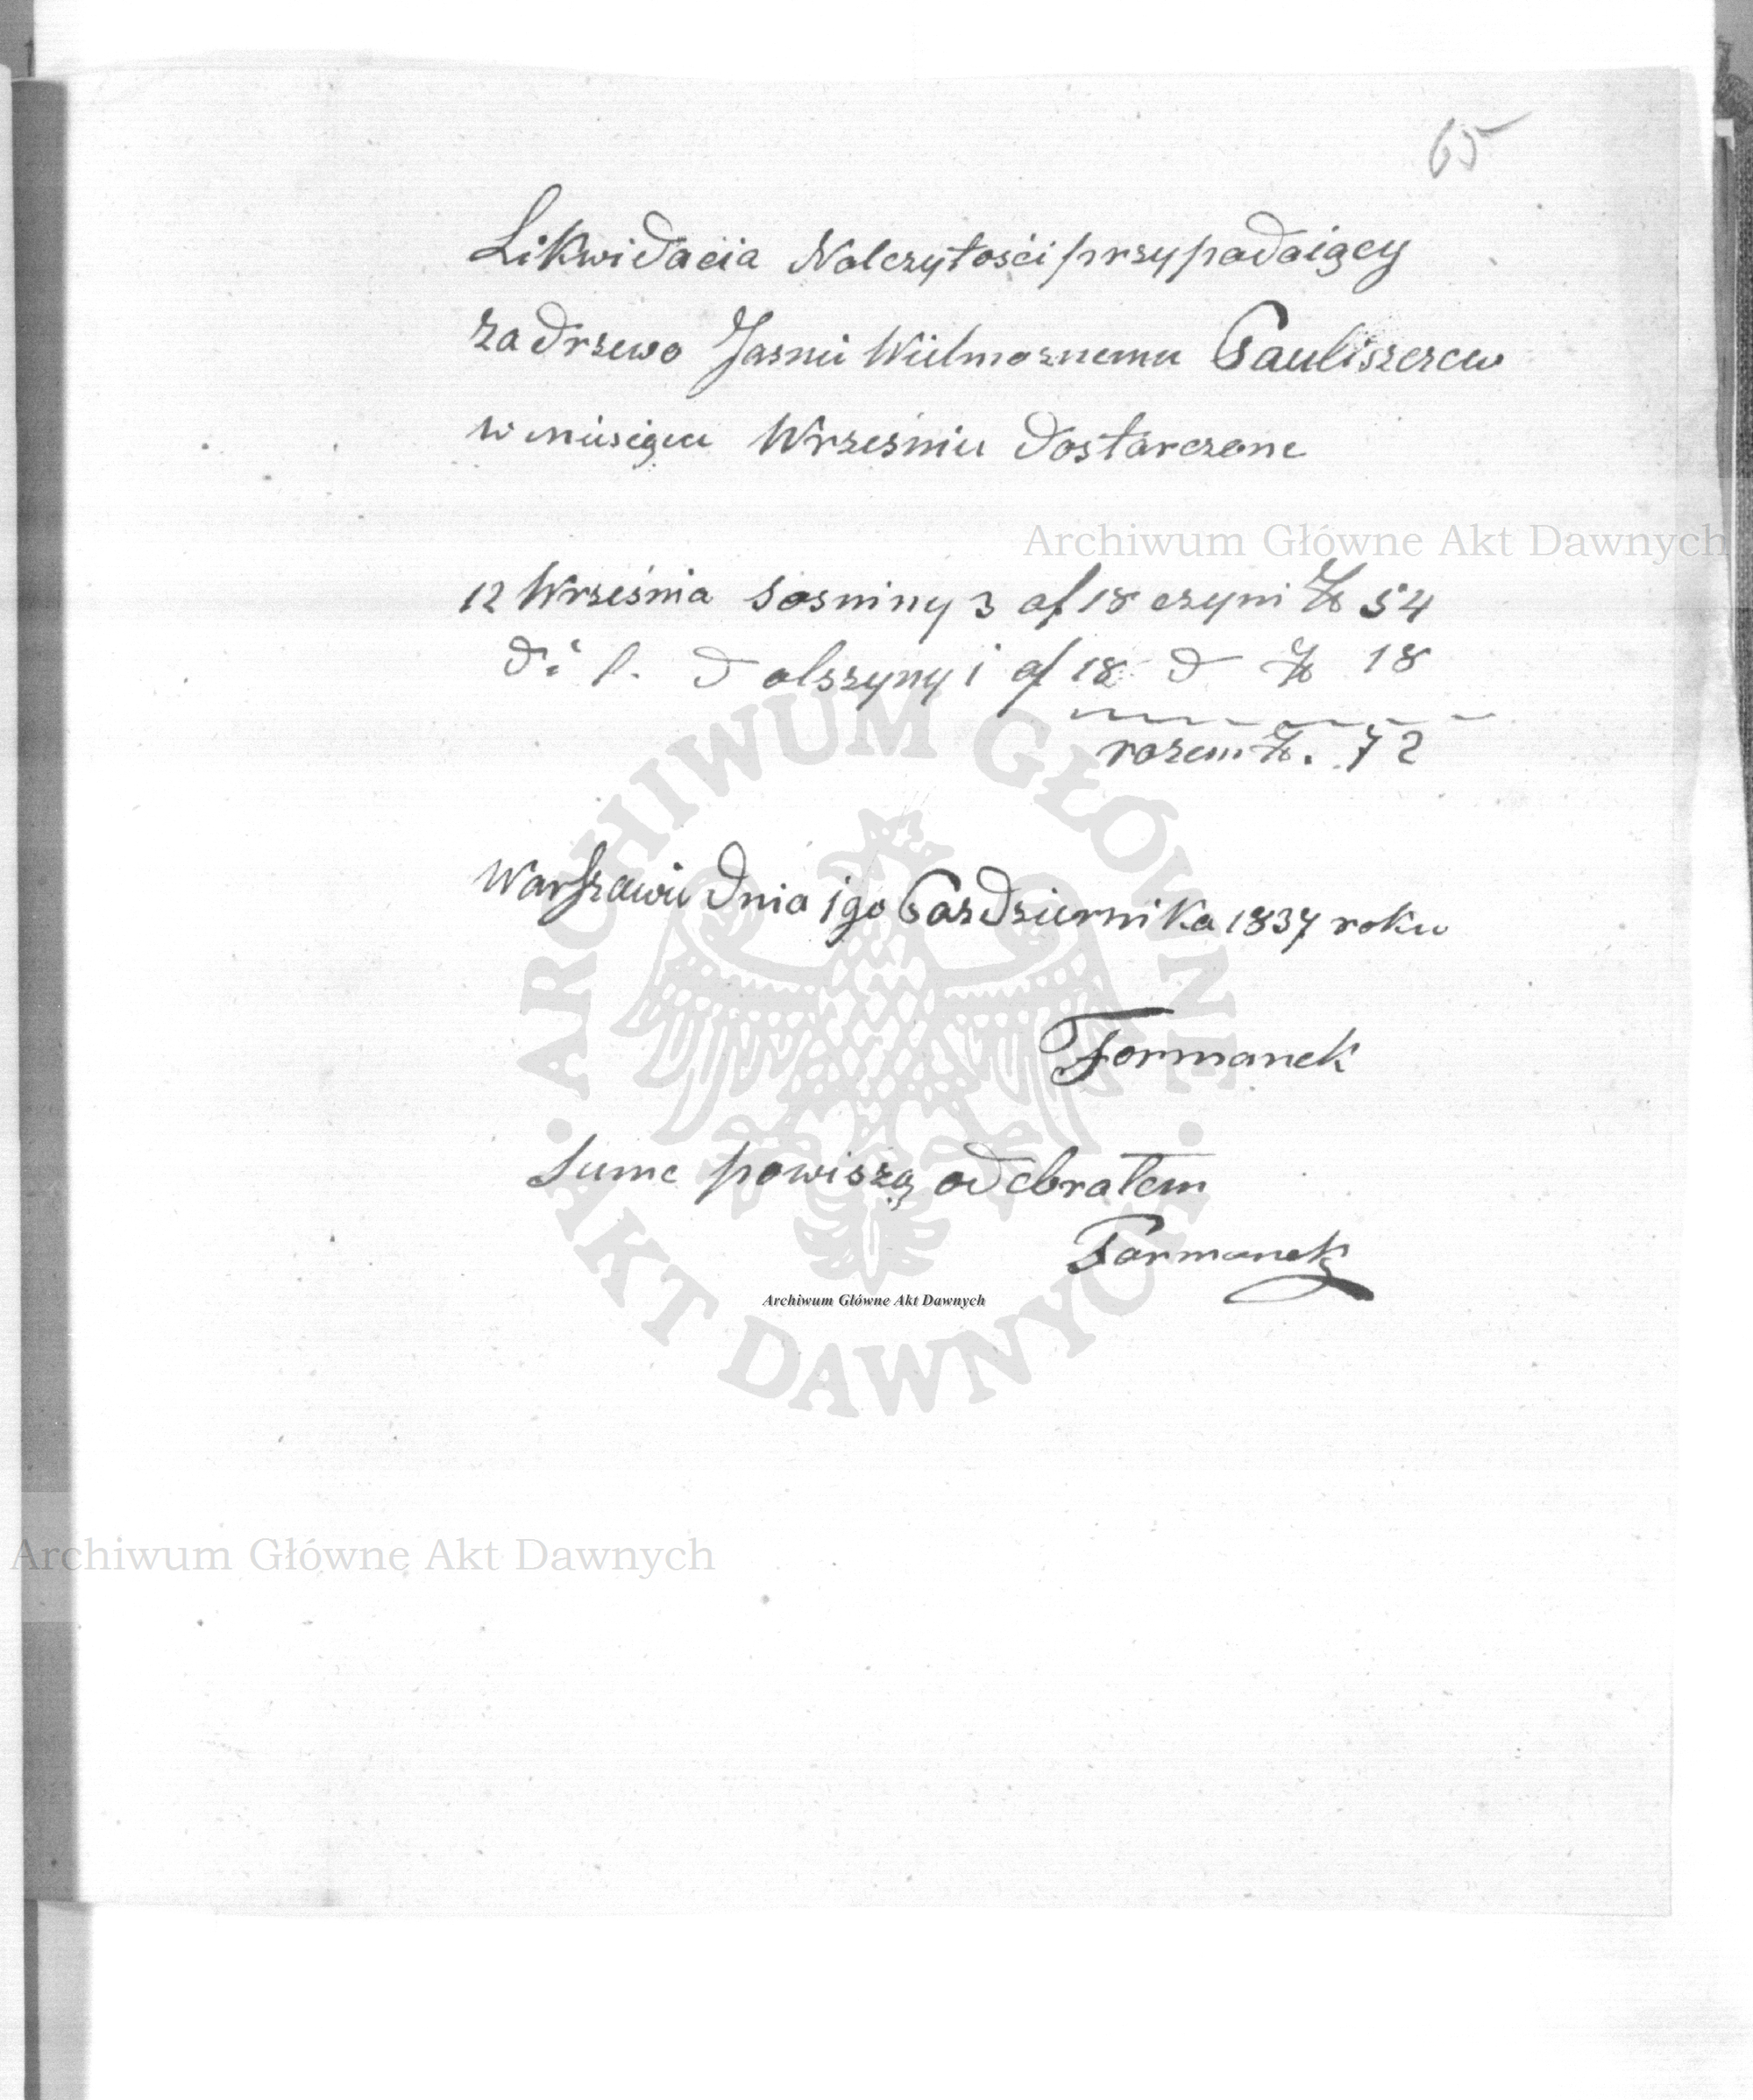 65
Likwidacia Nalczytości przypadaiący
za drzewo Jasnie Wielmoznemu Pauliszczew
w miesiącu Wrzesniu dostarczone
Archiwum Główne Akt Dawnych
12 Wrzesnia sosniny 3 af 18 czyni Zł 54
d olszyny 1 af 18 d Zł 18
razem Zł. 72
Warszawie dnia 1go Pazdziernika 1837 roku
Formanek
Sume powiszą odebrałem
Formanek
ARCHIWUM GŁÓWNE
AKT DAWNYCH
Archiwum Główne Akt Dawnych
Archiwum Główne Akt Dawnych